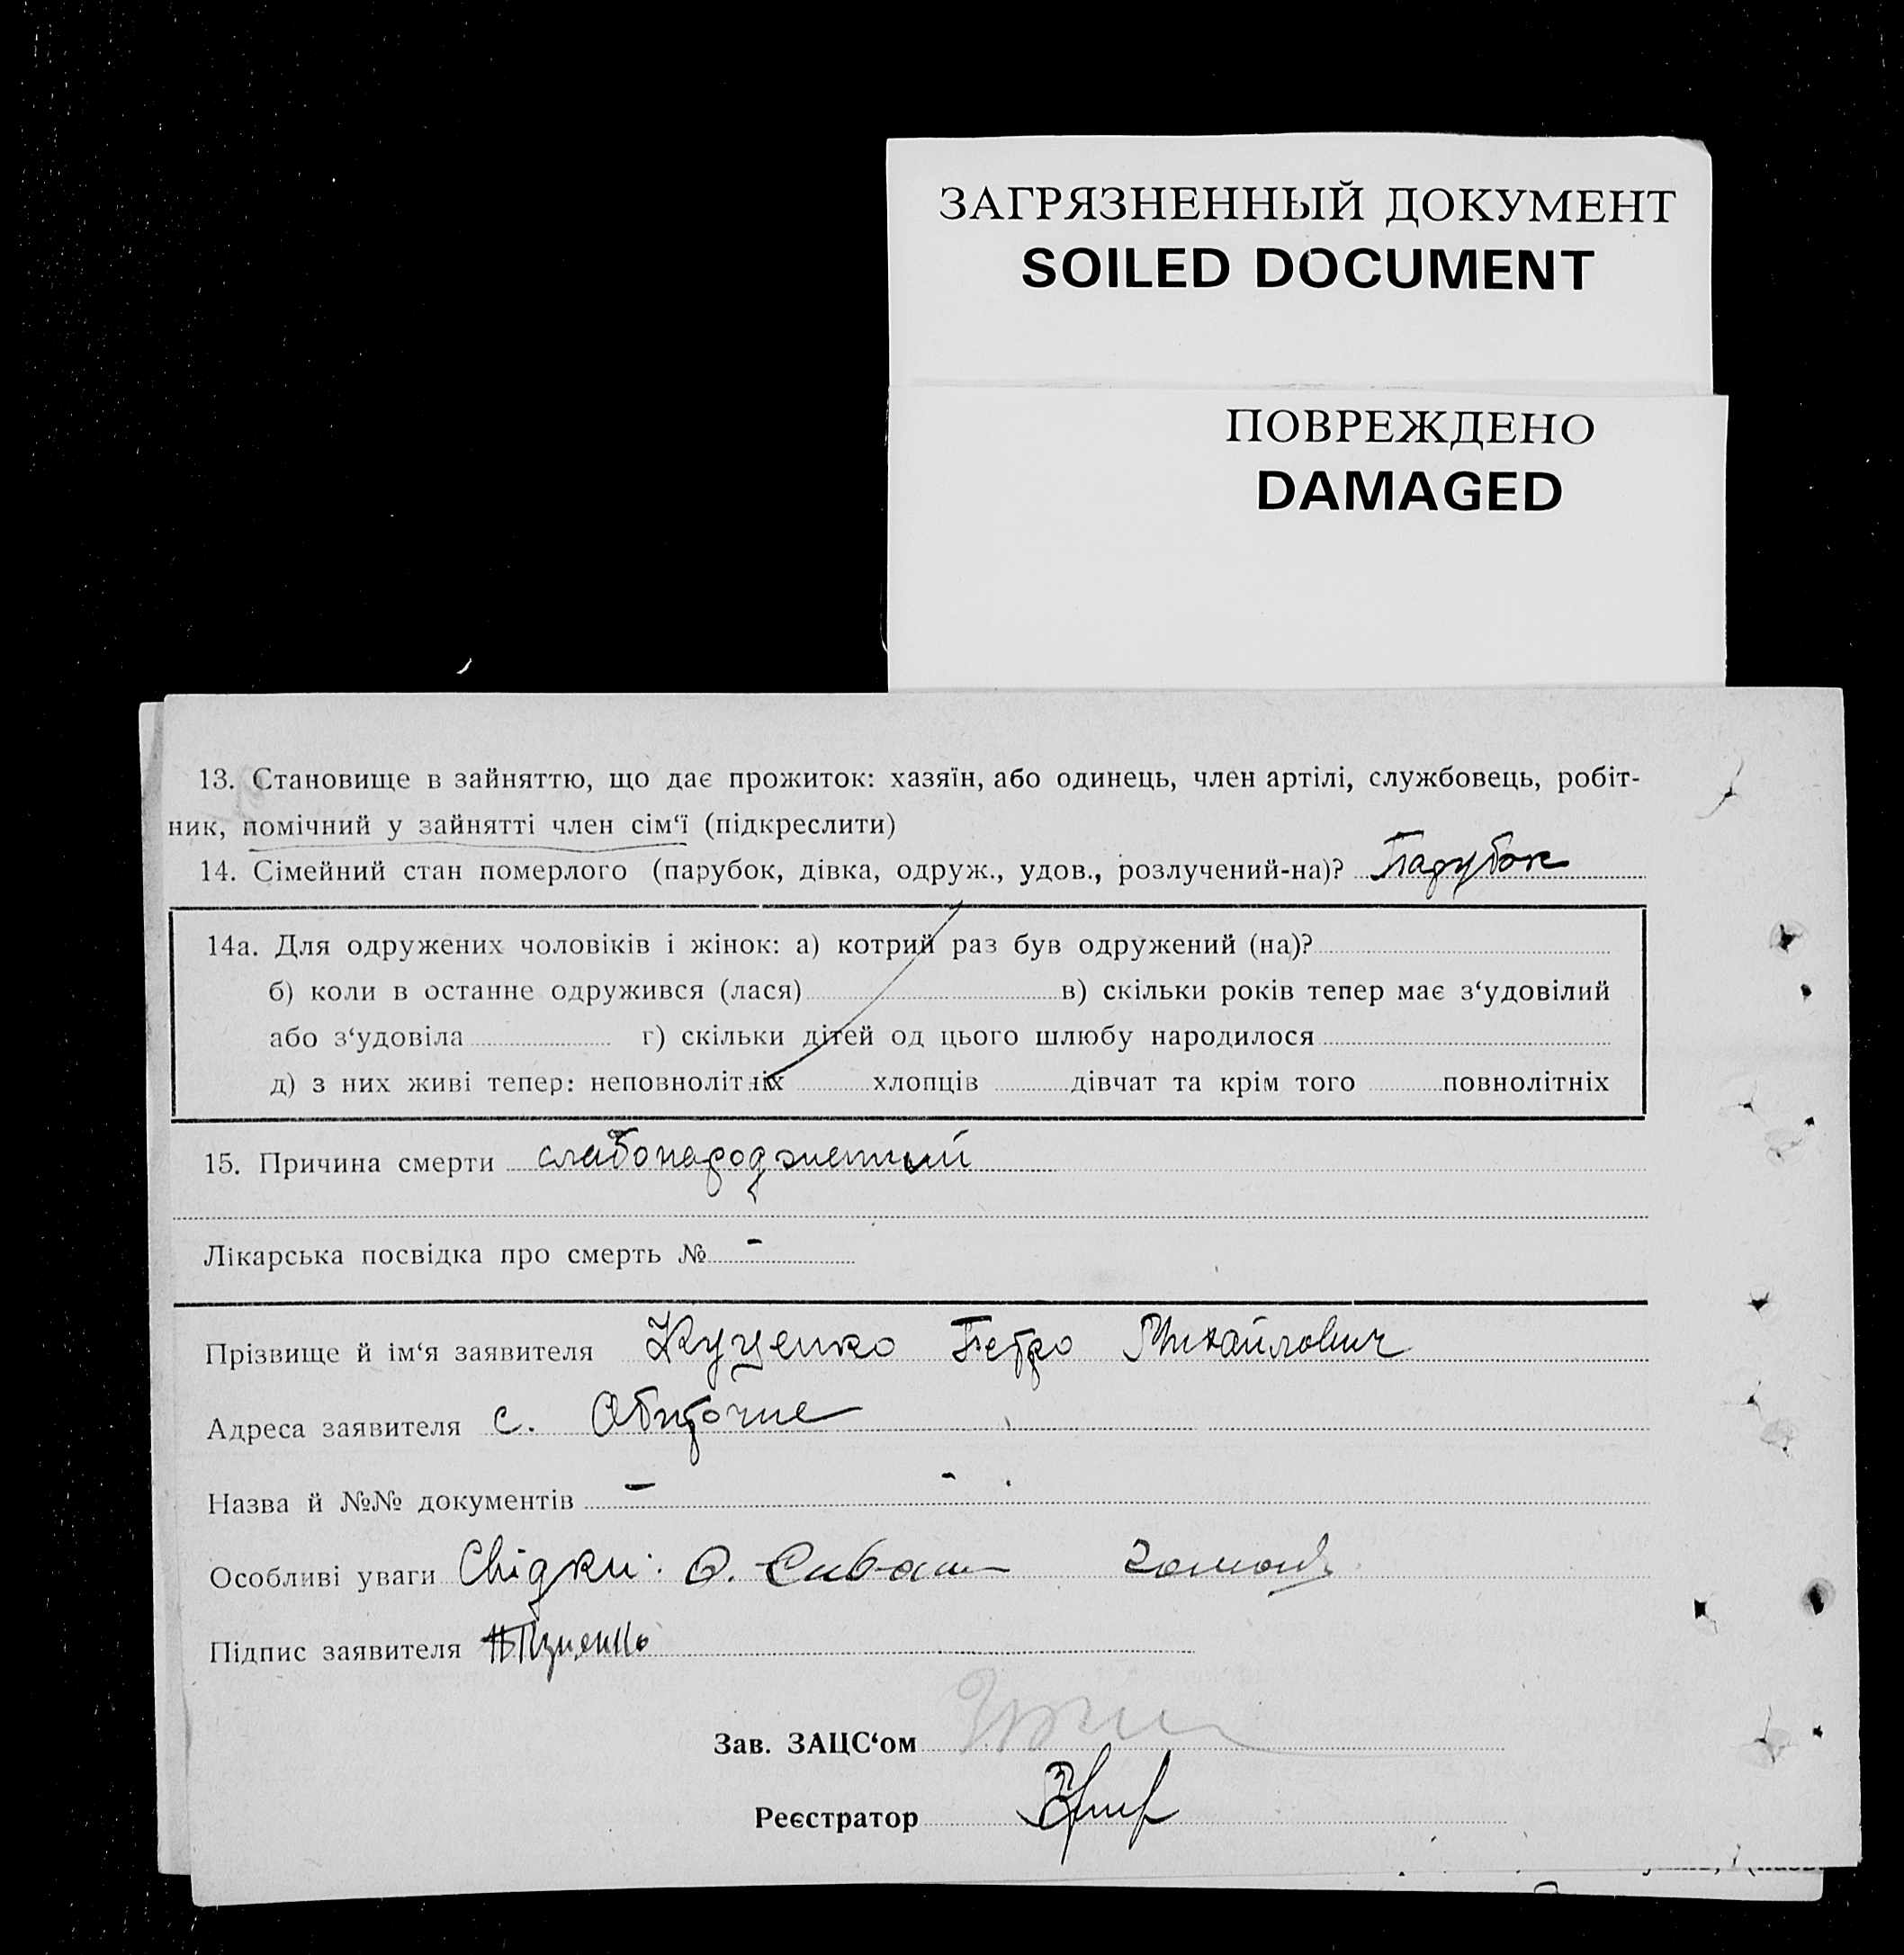 ЗАГРЯЗНЕННЫЙ ДОКУМЕНТ
SOILED DOCUMENT
ПОВРЕЖДЕНО
DAMAGED
13. Становище в зайняттю, що дає прожиток: хазяїн, або одинець, член артілі, службовець, робіт-
ник, помічний у зайнятті член сім‘ї (підкреслити)
14. Сімейний стан померлого (парубок, дівка, одруж., удов., розлучений-на)? Парубок
14а. Для одружених чоловіків і жінок: а) котрий раз був одружений (на)?
б) коли в останне одружився (лася) в) скільки років тепер має з‘удовілий
або з‘удовіла г) скільки дітей од цього шлюбу народилося
д) з них живі тепер: неповнолітніх хлопців дівчат та крім того повнолітніх
15. Причина смерти слабонародженный
Лікарська посвідка про смерть № -
Прізвище й ім‘я заявителя Куценко Петро Михайлович
Адреса заявителя с. Обиточне
Назва й №№ документів - -
Особливі уваги Свідки: О. Сиваш
Підпис заявителя
Зав. ЗАЦС‘ом
Реєстратор